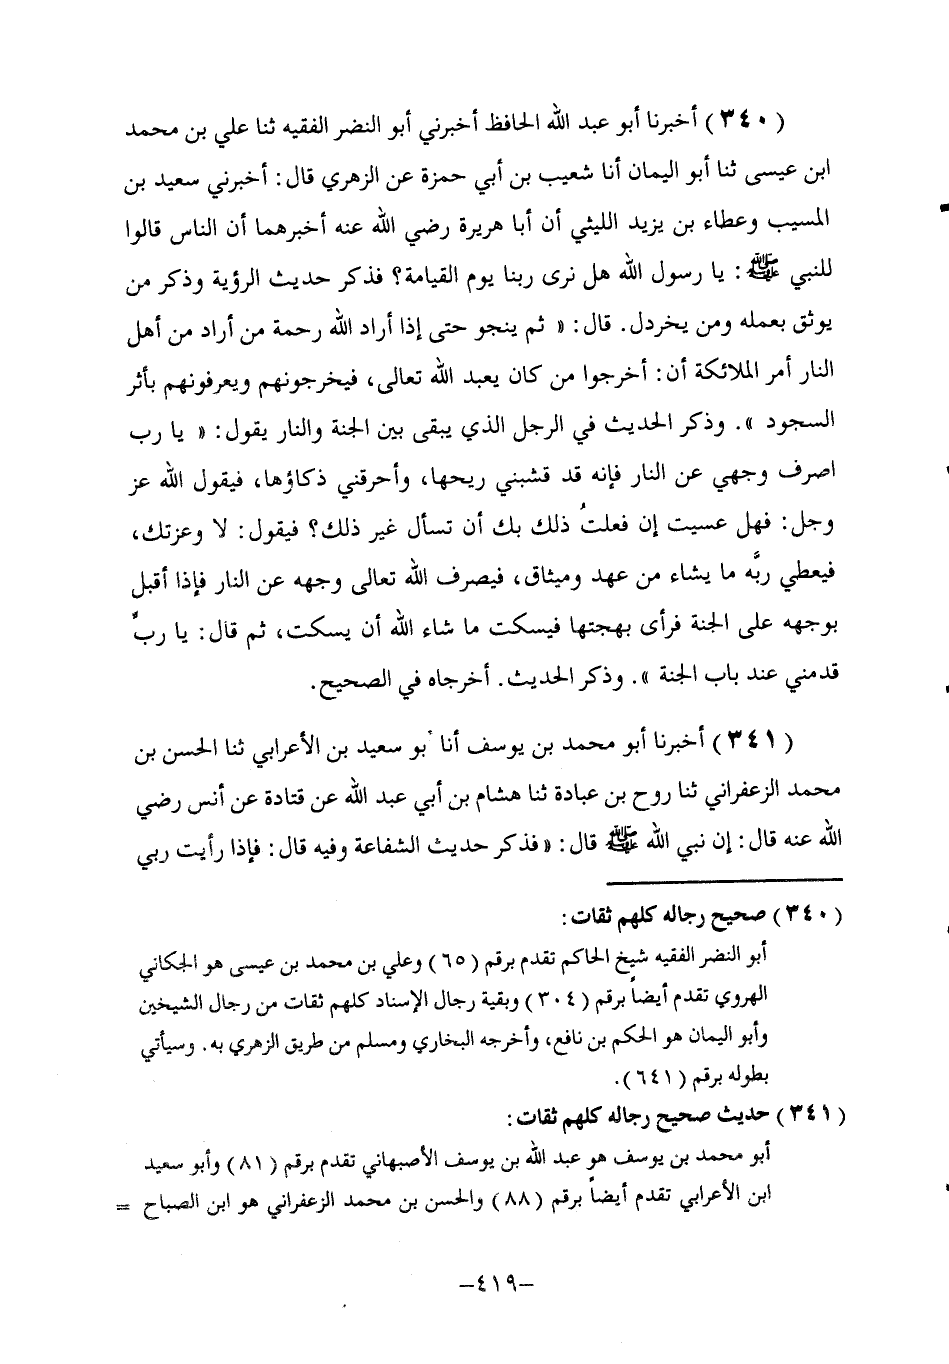 (٣٤٠) أخبرنا أبو عبد الله الحافظ أخبرني أبو النضر الفقيه ثنا علي بن محمد
ابن عيسى ثنا أبو اليمان أنا شعيب بن أبي حمزة عن الزهري قال: أخبرني سعيد بن
المسيب وعطاء بن يزيد الليثي أن أبا هريرة رضي الله عنه أخبرهما أن الناس قالوا
للنبي ﷺ: يا رسول الله هل نرى ربنا يوم القيامة؟ فذكر حديث الرؤية وذكر من
يوثق بعمله ومن يخردل. قال: « ثم ينجو حتى إذا أراد الله رحمة من أراد من أهل
النار أمر الملائكة أن: أخرجوا من كان يعبد الله تعالى، فيخرجونهم ويعرفونهم بأثر
السجود ». وذكر الحديث في الرجل الذي يبقى بين الجنة والنار يقول: « يا رب
اصرف وجهي عن النار فإنه قد قشبني ريحها، وأحرقني ذكاؤها، فيقول الله عز
وجل: فهل عسيت إن فعلتُ ذلك بك أن تسأل غير ذلك؟ فيقول: لا وعزتك،
فيعطي ربَّه ما يشاء من عهد وميثاق، فيصرف الله تعالى وجهه عن النار فإذا أقبل
بوجهه على الجنة فرأى بهجتها فيسكت ما شاء الله أن يسكت، ثم قال: يا ربِّ
قدمني عند باب الجنة ». وذكر الحديث. أخرجاه في الصحيح.
(٣٤١) أخبرنا أبو محمد بن يوسف أنا أبو سعيد بن الأعرابي ثنا الحسن بن
محمد الزعفراني ثنا روح بن عبادة ثنا هشام بن أبي عبد الله عن قتادة عن أنس رضي
الله عنه قال: إن نبي الله ﷺ قال: « فذكر حديث الشفاعة وفيه قال: فإذا رأيت ربي
(٣٤٠) صحيح رجاله كلهم ثقات:
أبو النضر الفقيه شيخ الحاكم تقدم برقم (٦٥) وعلي بن محمد بن عيسى هو الجكاني
الهروي تقدم أيضاً برقم (٣٠٤) وبقية رجال الإسناد كلهم ثقات من رجال الشيخين
وأبو اليمان هو الحكم بن نافع، وأخرجه البخاري ومسلم من طريق الزهري به. وسيأتي
بطوله برقم (٦٤١).
(٣٤١) حديث صحيح رجاله كلهم ثقات:
أبو محمد بن يوسف هو عبد الله بن يوسف الأصبهاني تقدم برقم (٨١) وأبو سعيد
ابن الأعرابي تقدم أيضاً برقم (٨٨) والحسن بن محمد الزعفراني هو ابن الصباح =
–٤١٩–